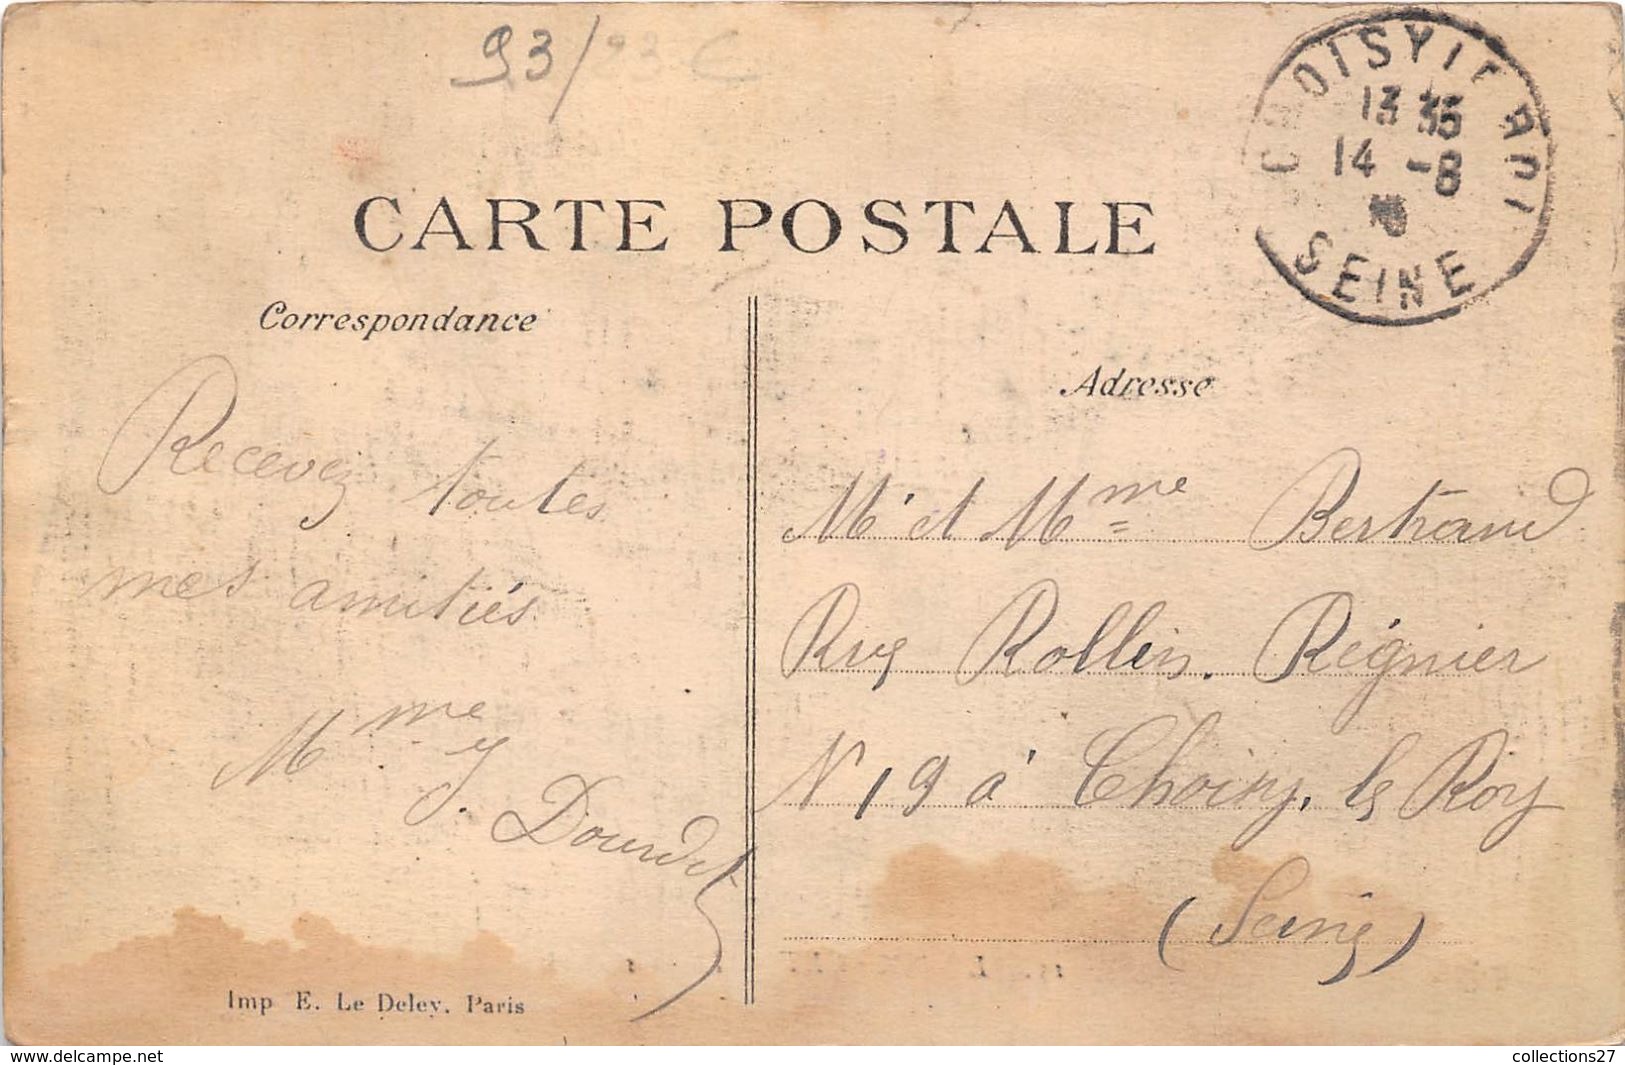 93/93 C
CHOISY LE ROI
13 35
14 -8
SEINE
CARTE POSTALE
Correspondance
Adresse
Recevez toutes
mes amitiés
Mme
Dourdet
Mr et Mme Bertrand
Rue Rollin. Régnier
N 19 à Choisy. le Roy
(Seine)
Imp E. Le Deley. Paris
www.delcampe.net
collections27